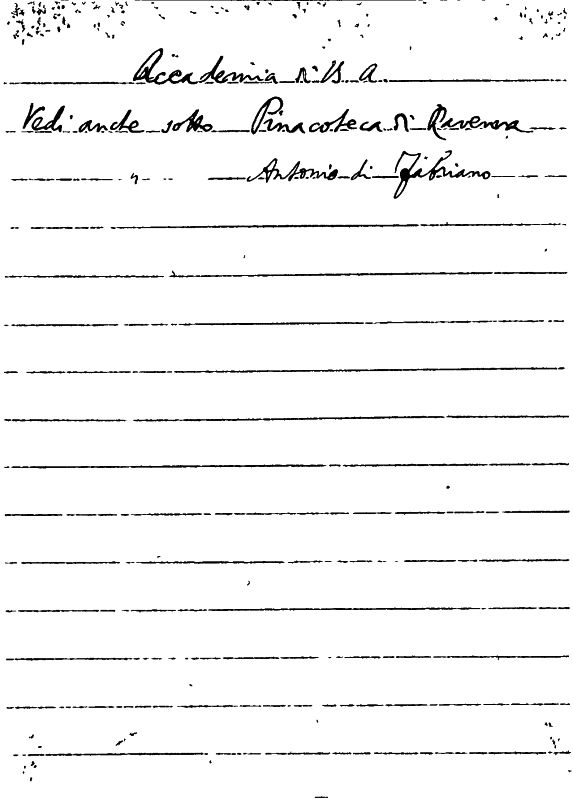 Accademia di B. A.
Vedi anche sotto Pinacoteca di Ravenna
" Antonio di Fabriano